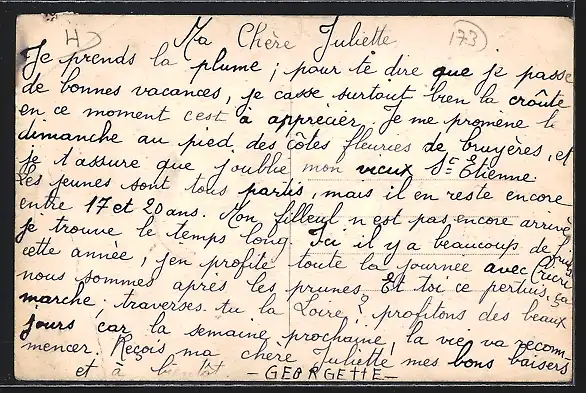 H
173
Ma Chère Juliette
Je prends la plume ; pour te dire que je passe
de bonnes vacances, je casse surtout bien la croûte
en ce moment c'est à apprécier. Je me promène le
dimanche au pied des côtes fleuries de bruyères, et
je t'assure que j'oublie mon vieux St Etienne.
Les jeunes sont tous partis, mais il en reste encore
entre 17 et 20 ans. Mon filleul n'est pas encore arrivé
je trouve le temps long. Ici il y a beaucoup de fruits
cette année, j'en profite toute la journée avec Cricri
nous sommes après les prunes. Et toi ce pertuis, ça
marche ; traverses-tu la Loire ? profitons des beaux
jours car la semaine prochaine, la vie va recom
mencer. Reçois ma chère Juliette mes bons baisers
et à bientôt. - GEORGETTE -